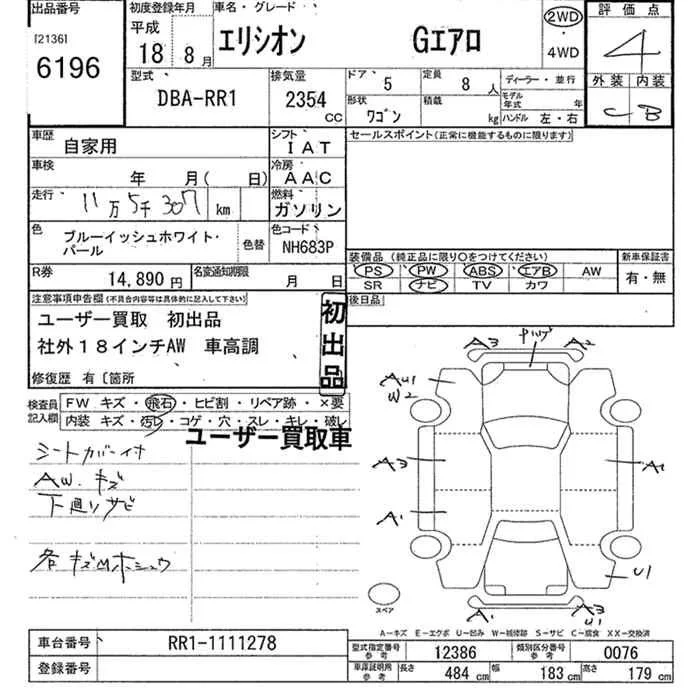 出品番号 初度登録年月 車名・グレード 評価点
[2136] 平成 エリシオン Gエアロ 2WD
6196 18年 8月 ・ 4
4WD
型式 排気量 ドア 5 定員 8人 ディーラー・並行 外装 内装
DBA-RR1 2354 CC 形状 ワゴン 積載 kg モデル年式 年 C B
ハンドル 左・右
車歴 自家用 シフト IAT セールスポイント(正常に機能するものに限ります)
車検 年 月( 日) 冷房 AAC
走行 11万5千307 km 燃料 ガソリン
色 ブルーイッシュホワイト・パール 色替 色コード NH683P
装備品(純正品に限り〇をつけてください) 新車保証書
PS PW ABS エアB AW 有・無
SR ナビ TV カワ
R券 14,890円 名変通知期限 月 日
後日品
注意事項申告欄(不具合内容等は具体的に記入して下さい)
ユーザー買取 初出品
社外18インチAW 車高調
初出品
修復歴 有〔箇所
検査員記入欄 FW キズ・飛石・ヒビ割・リペア跡・×要
内装 キズ・汚レ・コゲ・穴・スレ・キレ・破レ
ユーザー買取車
シートカバー付
AW.キズ
下廻りサビ
各キズ凹ホシュウ
A3 A2
AU1
W2
A3 A2
A1
U1
A1 A3
U1
スペア
A-キズ E-エクボ U-凹み W-補修跡 S-サビ C-腐食 XX-交換済
車台番号 RR1-1111278
登録番号
型式指定番号 参考 12386 類別区分番号 参考 0076
車庫証明用 参考 長さ 484cm 幅 183cm 高さ 179cm